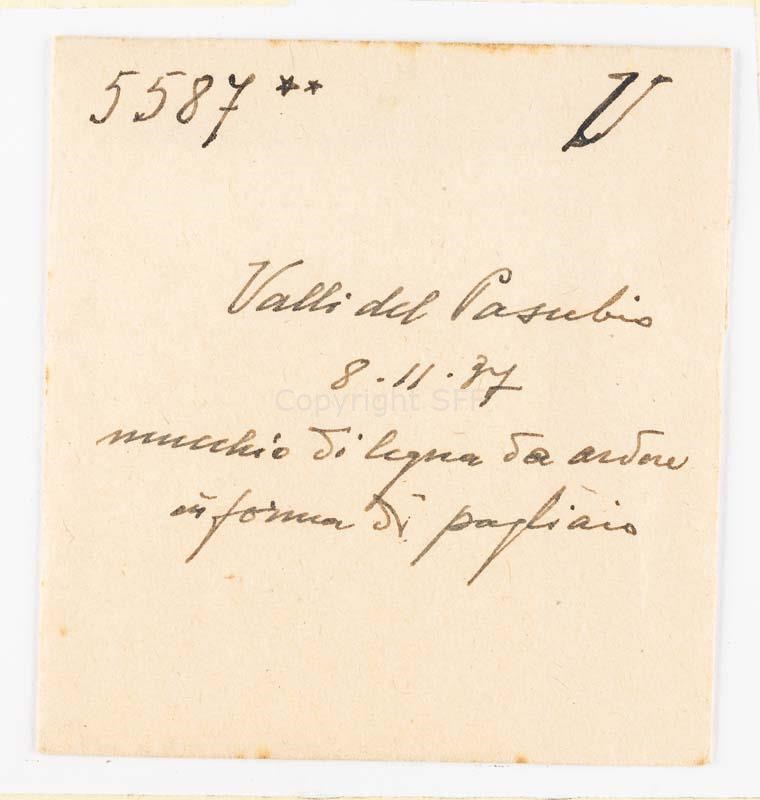 5587 ** V
Valli del Pasubio
8.11.37
Copyright SFF
mucchio di legna da ardere
in forma di pagliaio